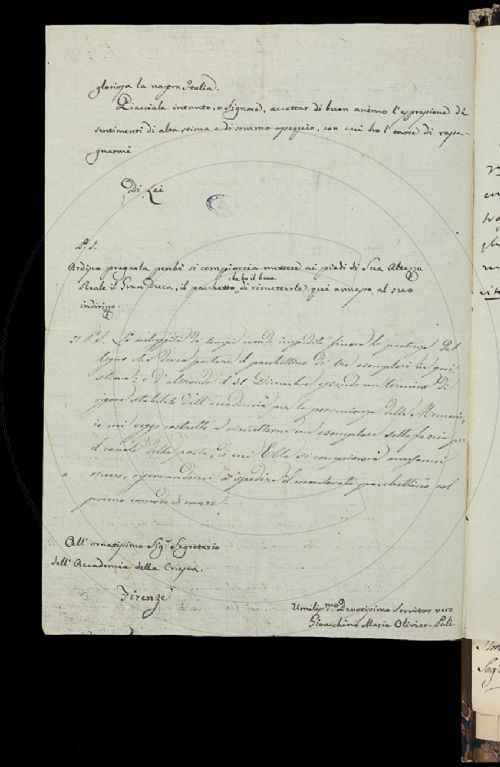 gloriosa la nostra Italia.
Piacciale intanto, o Signore, accettar di buon animo l'espressione de'
sentimenti di alta stima e di sommo ossequio, con cui ho l'onore di rasse-
gnarmi
Di Lei
P. S.
Ardisco pregarla perchè si compiaccia mettere ai piedi di Sua Altezza
che ho il bene
Reale il Gran Duca, il pacchetto, di rimetterle qui annesso al suo
indirizzo.
2º P.S. La del tempo avendo impedito finora la partenza del
legno che deve portare il pacchettino di tre esemplari in qui-
stione: e d'altronde il 31 Dicembre essendo un termine di
rigore stabilito dall'accademia per la delle Memorie,
io mi veggo costretto a rimetterne un esemplare sotto fascia per
il canale della posta, di cui Ella si compiacerà accusarmi
riservandomi a spedire il pacchettino col
primo comodo di mare.
All' ornatissimo Sigr Segretario
dell' Accademia della Crusca.
Firenze
Umiliss.mo Devotissimo Servitor vero
Gioacchino Maria Olivier-Poli